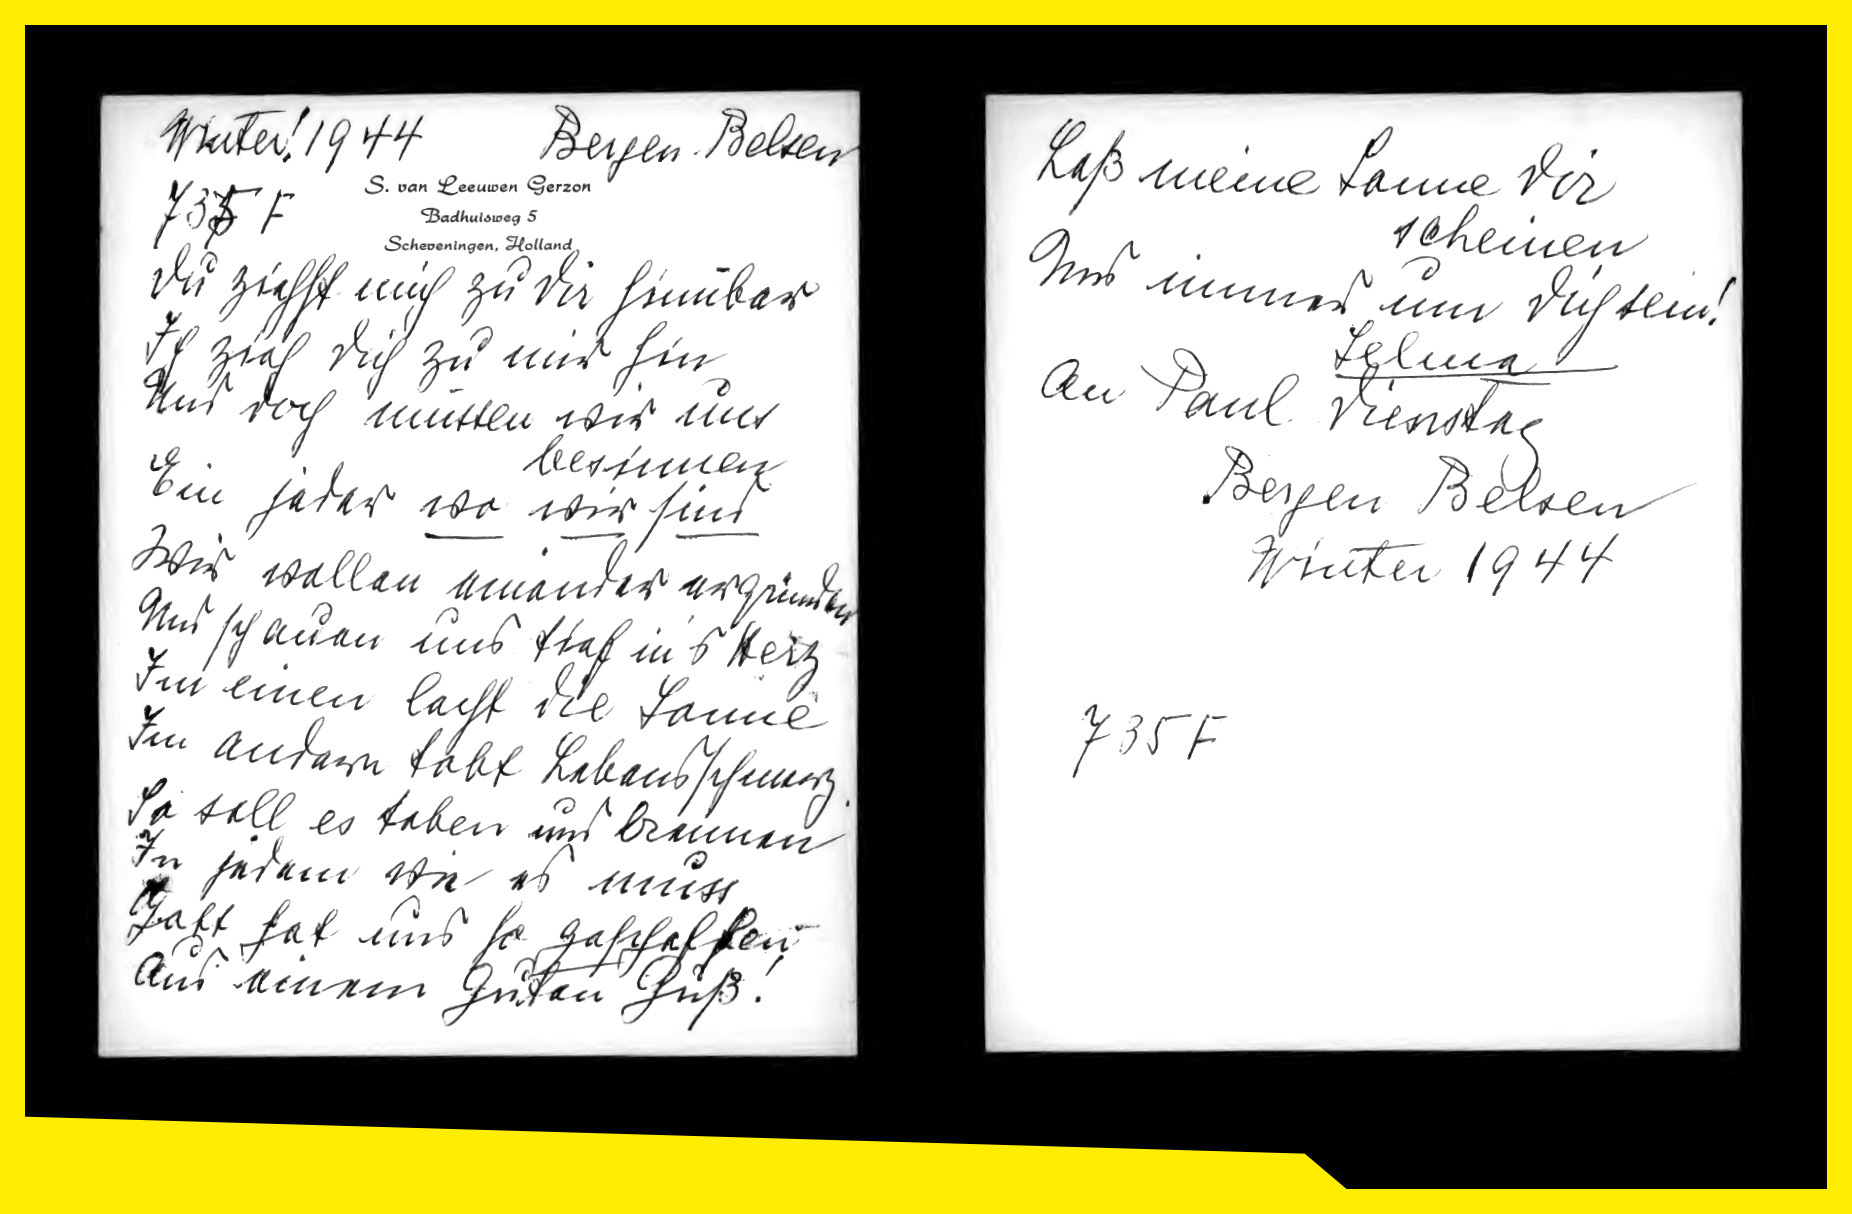 Winter! 1944 Bergen-Belsen
S. van Leeuwen Gerzon
735 F
Badhuisweg 5
Scheveningen, Holland
Du ziehst mich zu Dir hinüber
Ich zieh Dich zu mir hin
Und doch müssen wir uns
besinnen
Ein jeder wo wir sind
Wir wollen einander ergründen
Und schauen uns tief in's Herz
Im einen lacht die Sonne
Im andern tobt Lebensschmerz.
So soll es toben und brennen
In jedem wie es muss
Gott hat uns so geschaffen,
Aus einem Guten Guß!
Laß meine Sonne Dir
scheinen
Und immer um Dich sein!
Selma
An Paul Dienstag
Bergen Belsen
Winter 1944
735 F